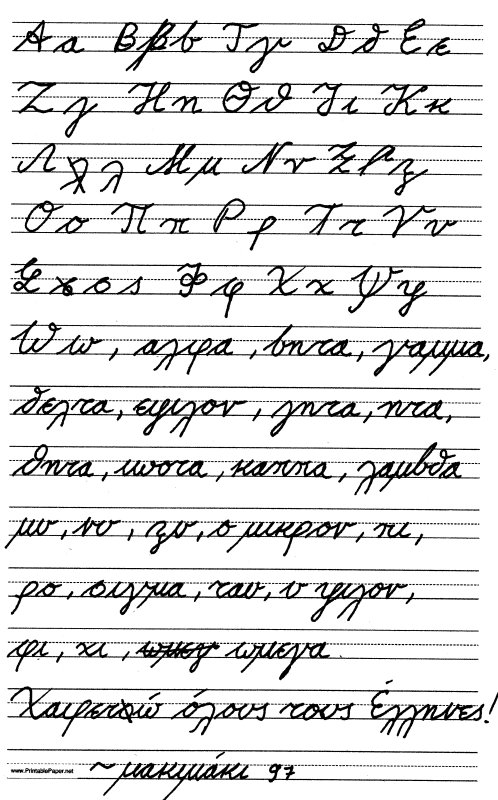 Α α Β β b Γ γ Δ δ Ε ε
Ζ ζ Η η Θ θ Ι ι Κ κ
Λ λ Μ μ Ν ν Ξ ξ
Ο ο Π π Ρ ρ Τ τ Υ υ
Σ σ ς Φ φ Χ χ Ψ ψ
Ω ω, αλφα, βητα, γαμμα,
δελτα, εψιλον, ζητα, ητα,
θητα, ιωοτα, καππα, λαμβδα
μυ, νυ, ξυ, ο μικρον, πι,
ρο, σιγμα, ταυ, υ ψιλον,
φι, χι, ωμεγα
Χαιρετώ όλους τους Έλληνες!
www.PrintablePaper.net ~ μακιμάκι 97